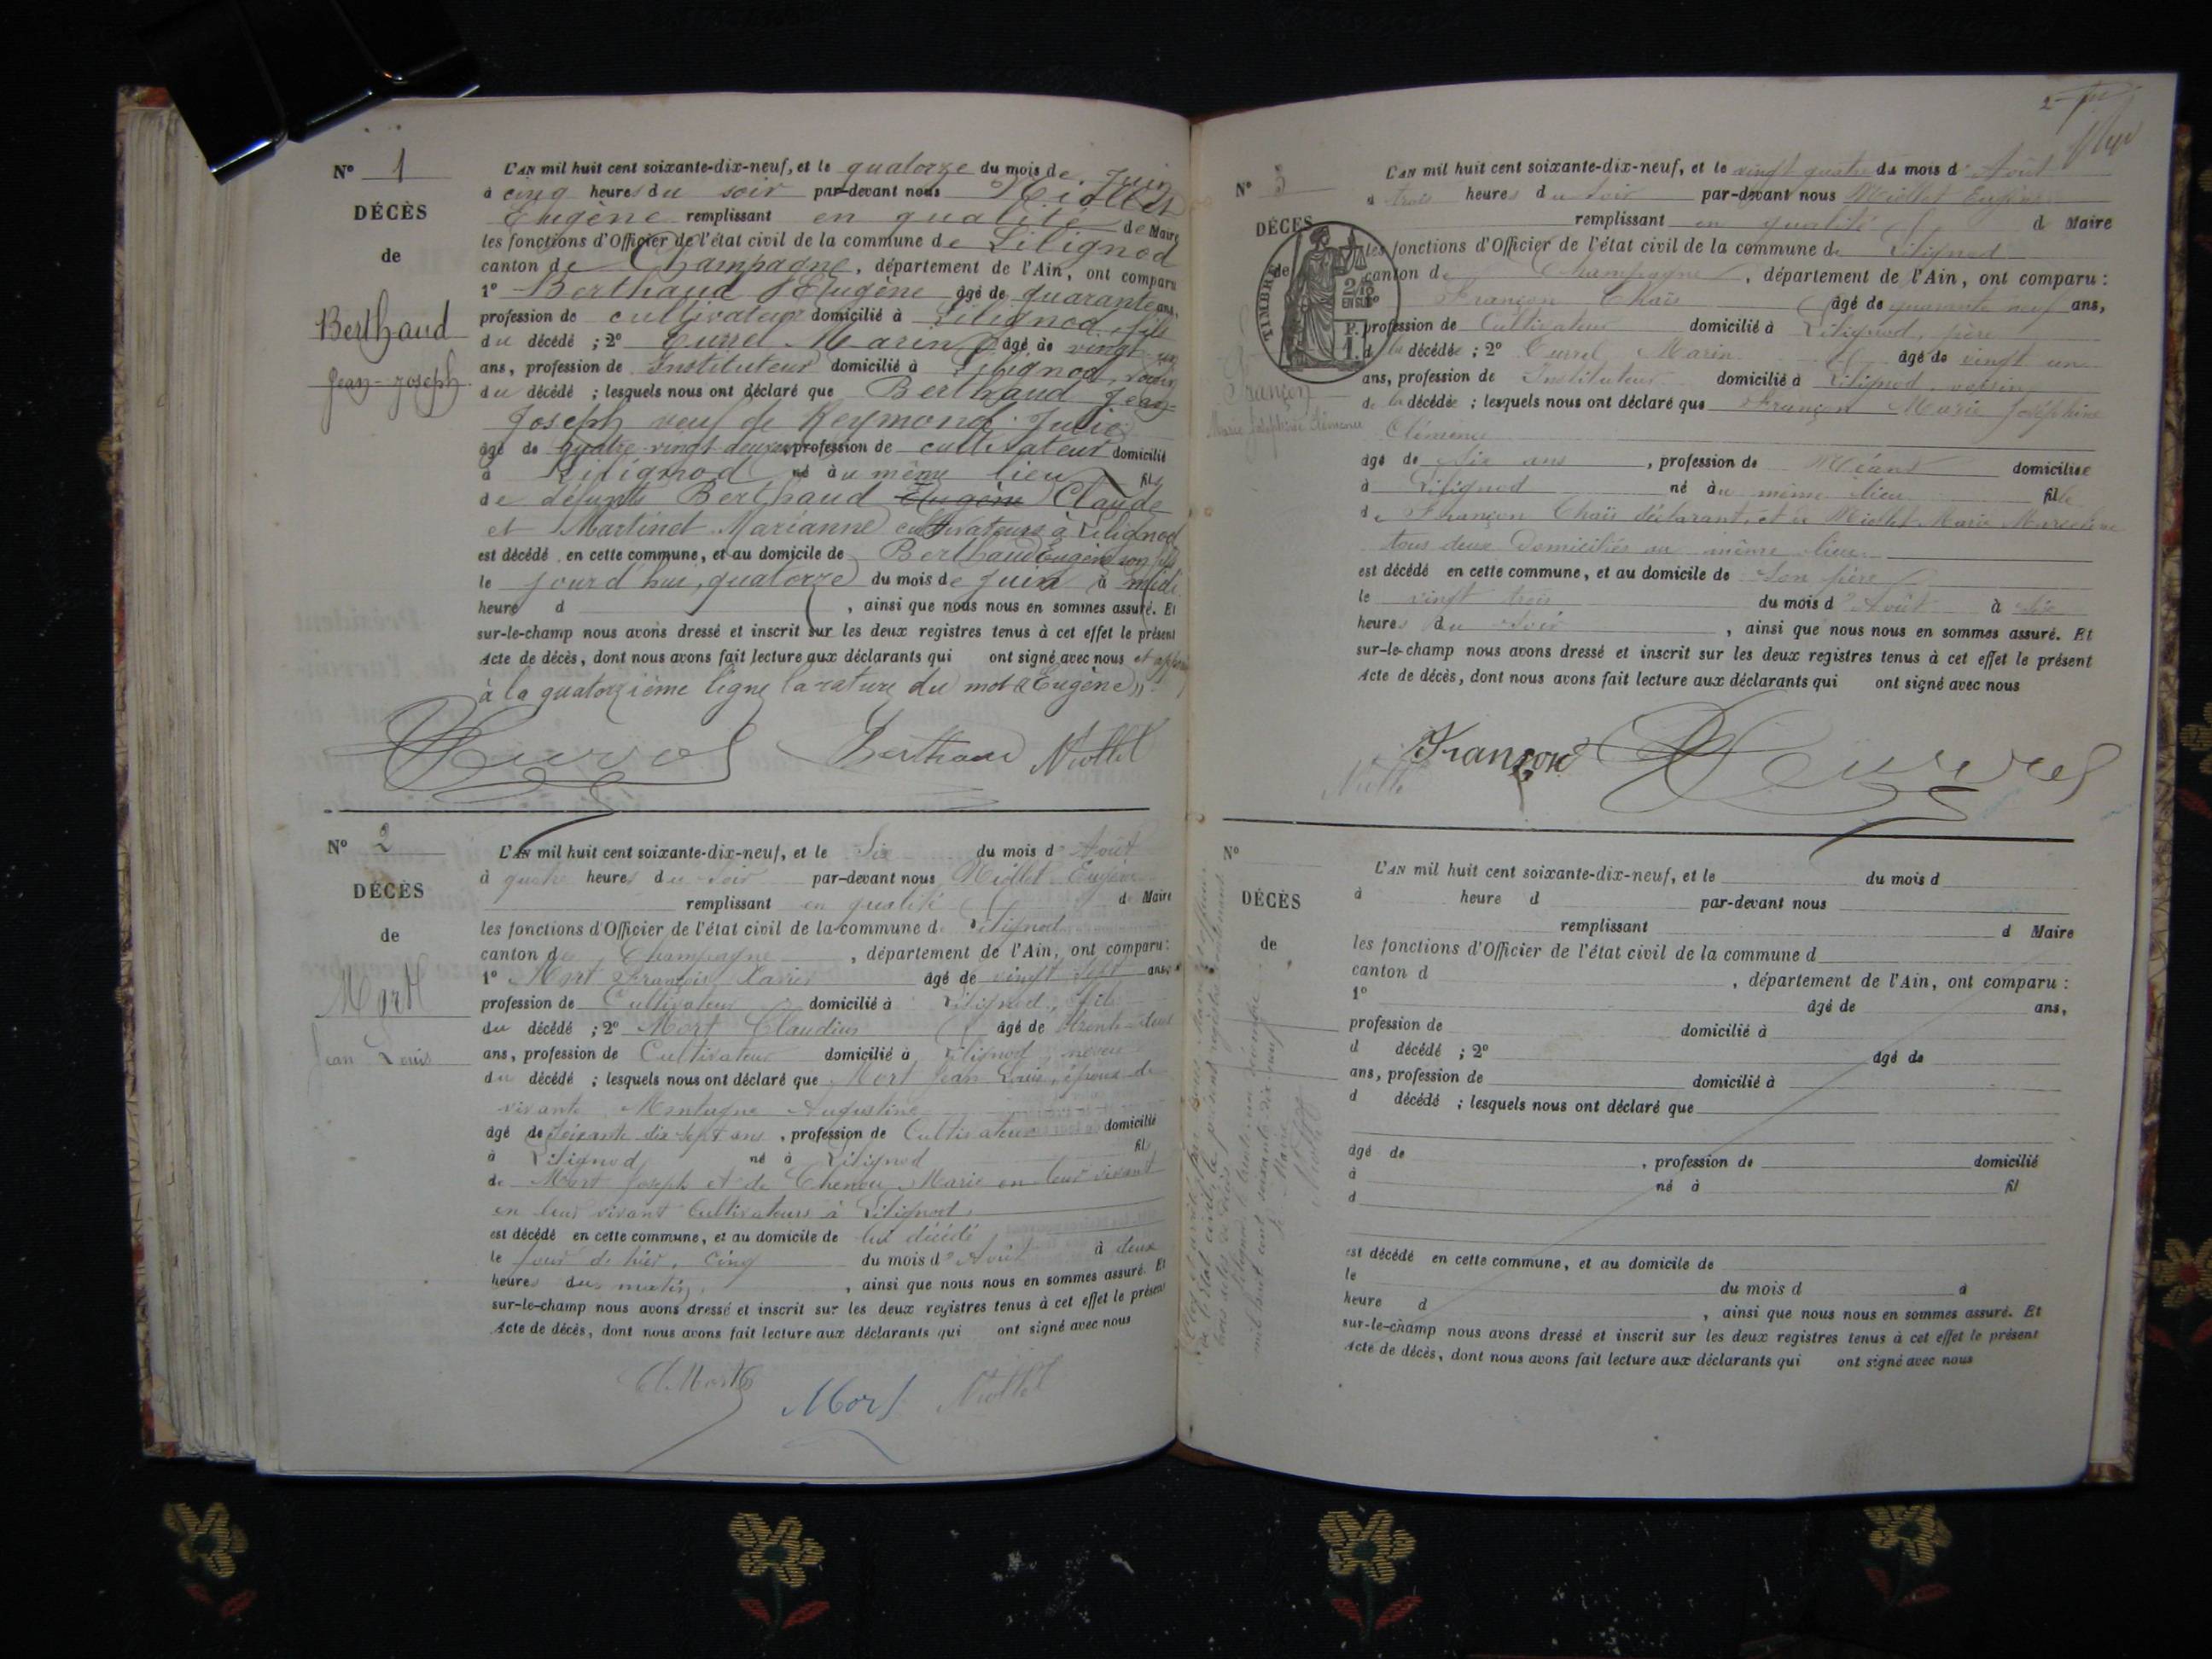 N° 1
DÉCÈS
de
Berthaud
Jean-Joseph
L'AN mil huit cent soixante-dix-neuf, et le quatorze du mois de Juin
à cinq heures du soir par-devant nous Niollet
Eugène remplissant en qualité de Maire
les fonctions d'Officier de l'état civil de la commune de Lilignod
canton de Champagne, département de l'Ain, ont comparu
1° Berthaud Eugène âgé de quarante ans,
profession de cultivateur domicilié à Lilignod, fils
du décédé ; 2° Curvel Marin âgé de vingt un
ans, profession de Instituteur domicilié à Lilignod, voisin
du décédé ; lesquels nous ont déclaré que Berthaud Jean-
Joseph veuf de Reymond Julie
âgé de quatre-vingt-deux ans, profession de cultivateur domicilié
à Lilignod né au même lieu fils
de défunts Berthaud Eugène Claude
et Martinet Marianne cultivateurs à Lilignod
est décédé en cette commune, et au domicile de Berthaud Eugène son fils
le jour d'hui, quatorze du mois de Juin à midi
heure d , ainsi que nous nous en sommes assuré. Et
sur-le-champ nous avons dressé et inscrit sur les deux registres tenus à cet effet le présent
Acte de décès, dont nous avons fait lecture aux déclarants qui ont signé avec nous et
à la quatorzième ligne la rature du mot «Eugène».
Curvel Berthaud Niollet
N° 2
DÉCÈS
de
Mort
Jean Louis
L'AN mil huit cent soixante-dix-neuf, et le Six du mois d'Août
à quatre heures du soir par-devant nous Niollet Eugène
remplissant en qualité de Maire
les fonctions d'Officier de l'état civil de la commune de Lilignod
canton de Champagne, département de l'Ain, ont comparu :
1° Mort François Xavier âgé de vingt sept ans,
profession de Cultivateur domicilié à Lilignod, fils
du décédé ; 2° Mort Claudius âgé de trente-deux
ans, profession de Cultivateur domicilié à Lilignod, neveu
du décédé ; lesquels nous ont déclaré que Mort Jean Louis, époux de
vivante Montagne Augustine
âgé de soixante dix sept ans, profession de Cultivateur domicilié
à Lilignod né à Lilignod fils
de Mort Joseph et de Marie en leur vivant
en leur vivant Cultivateurs à Lilignod,
est décédé en cette commune, et au domicile de lui décédé
le jour de hier, cinq du mois d'Août à deux
heures du matin, ainsi que nous nous en sommes assuré. Et
sur-le-champ nous avons dressé et inscrit sur les deux registres tenus à cet effet le présent
Acte de décès, dont nous avons fait lecture aux déclarants qui ont signé avec nous
Mort Mort Niollet
N° 3
DÉCÈS
de
Françon
Marie Joséphine Clémence
TIMBRE
L'AN mil huit cent soixante-dix-neuf, et le vingt quatre du mois d'Août
à trois heures du soir par-devant nous Niollet Eugène
remplissant en qualité d Maire
les fonctions d'Officier de l'état civil de la commune de Lilignod
canton de Champagne, département de l'Ain, ont comparu :
1° Françon Chaïs âgé de quarante neuf ans,
profession de Cultivateur domicilié à Lilignod, père
de la décédée ; 2° Curvel Marin âgé de vingt un
ans, profession de Instituteur domicilié à Lilignod, voisin
de la décédée ; lesquels nous ont déclaré que Françon Marie Joséphine
Clémence
âgé de six ans, profession de Néant domiciliée
à Lilignod né au même lieu fille
de Françon Chaïs déclarant, et de Niollet Marie
tous deux domiciliés au même lieu
est décédé en cette commune, et au domicile de son père
le vingt trois du mois d'Août à six
heures du soir, ainsi que nous nous en sommes assuré. Et
sur-le-champ nous avons dressé et inscrit sur les deux registres tenus à cet effet le présent
Acte de décès, dont nous avons fait lecture aux déclarants qui ont signé avec nous
Niollet Françon Curvel
N°
DÉCÈS
de
L'AN mil huit cent soixante-dix-neuf, et le du mois d
à heure d par-devant nous
remplissant d Maire
les fonctions d'Officier de l'état civil de la commune d
canton d , département de l'Ain, ont comparu :
1° âgé de ans,
profession de domicilié à
d décédé ; 2° âgé de
ans, profession de domicilié à
d décédé ; lesquels nous ont déclaré que
âgé de , profession de domicilié
à né à fil
d
est décédé en cette commune, et au domicile de
le du mois d à
heure d , ainsi que nous nous en sommes assuré. Et
sur-le-champ nous avons dressé et inscrit sur les deux registres tenus à cet effet le présent
Acte de décès, dont nous avons fait lecture aux déclarants qui ont signé avec nous
mil huit cent soixante dix neuf
le Maire
Niollet